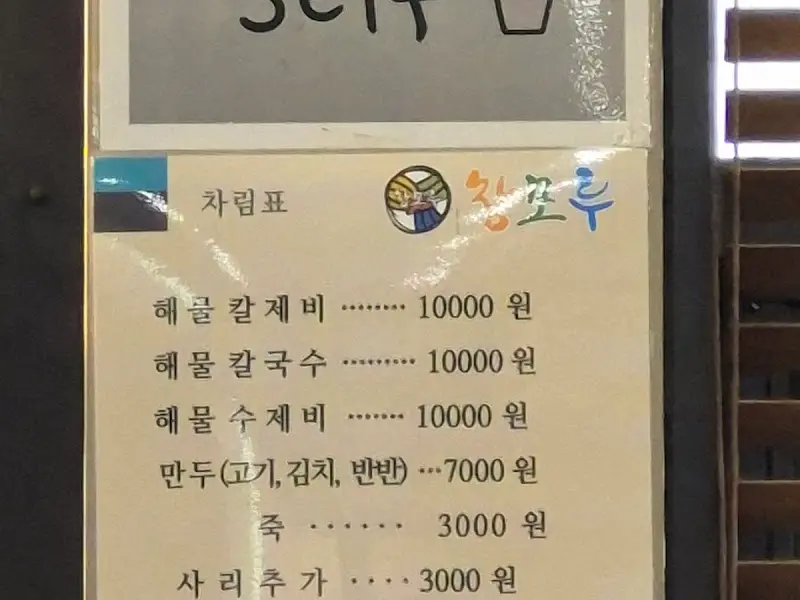 차림표
창포루
해물칼제비 ········ 10000 원
해물칼국수 ········· 10000 원
해물수제비 ······· 10000 원
만두(고기, 김치, 반반) ···7000 원
죽 ······ 3000 원
사리추가 ···· 3000 원